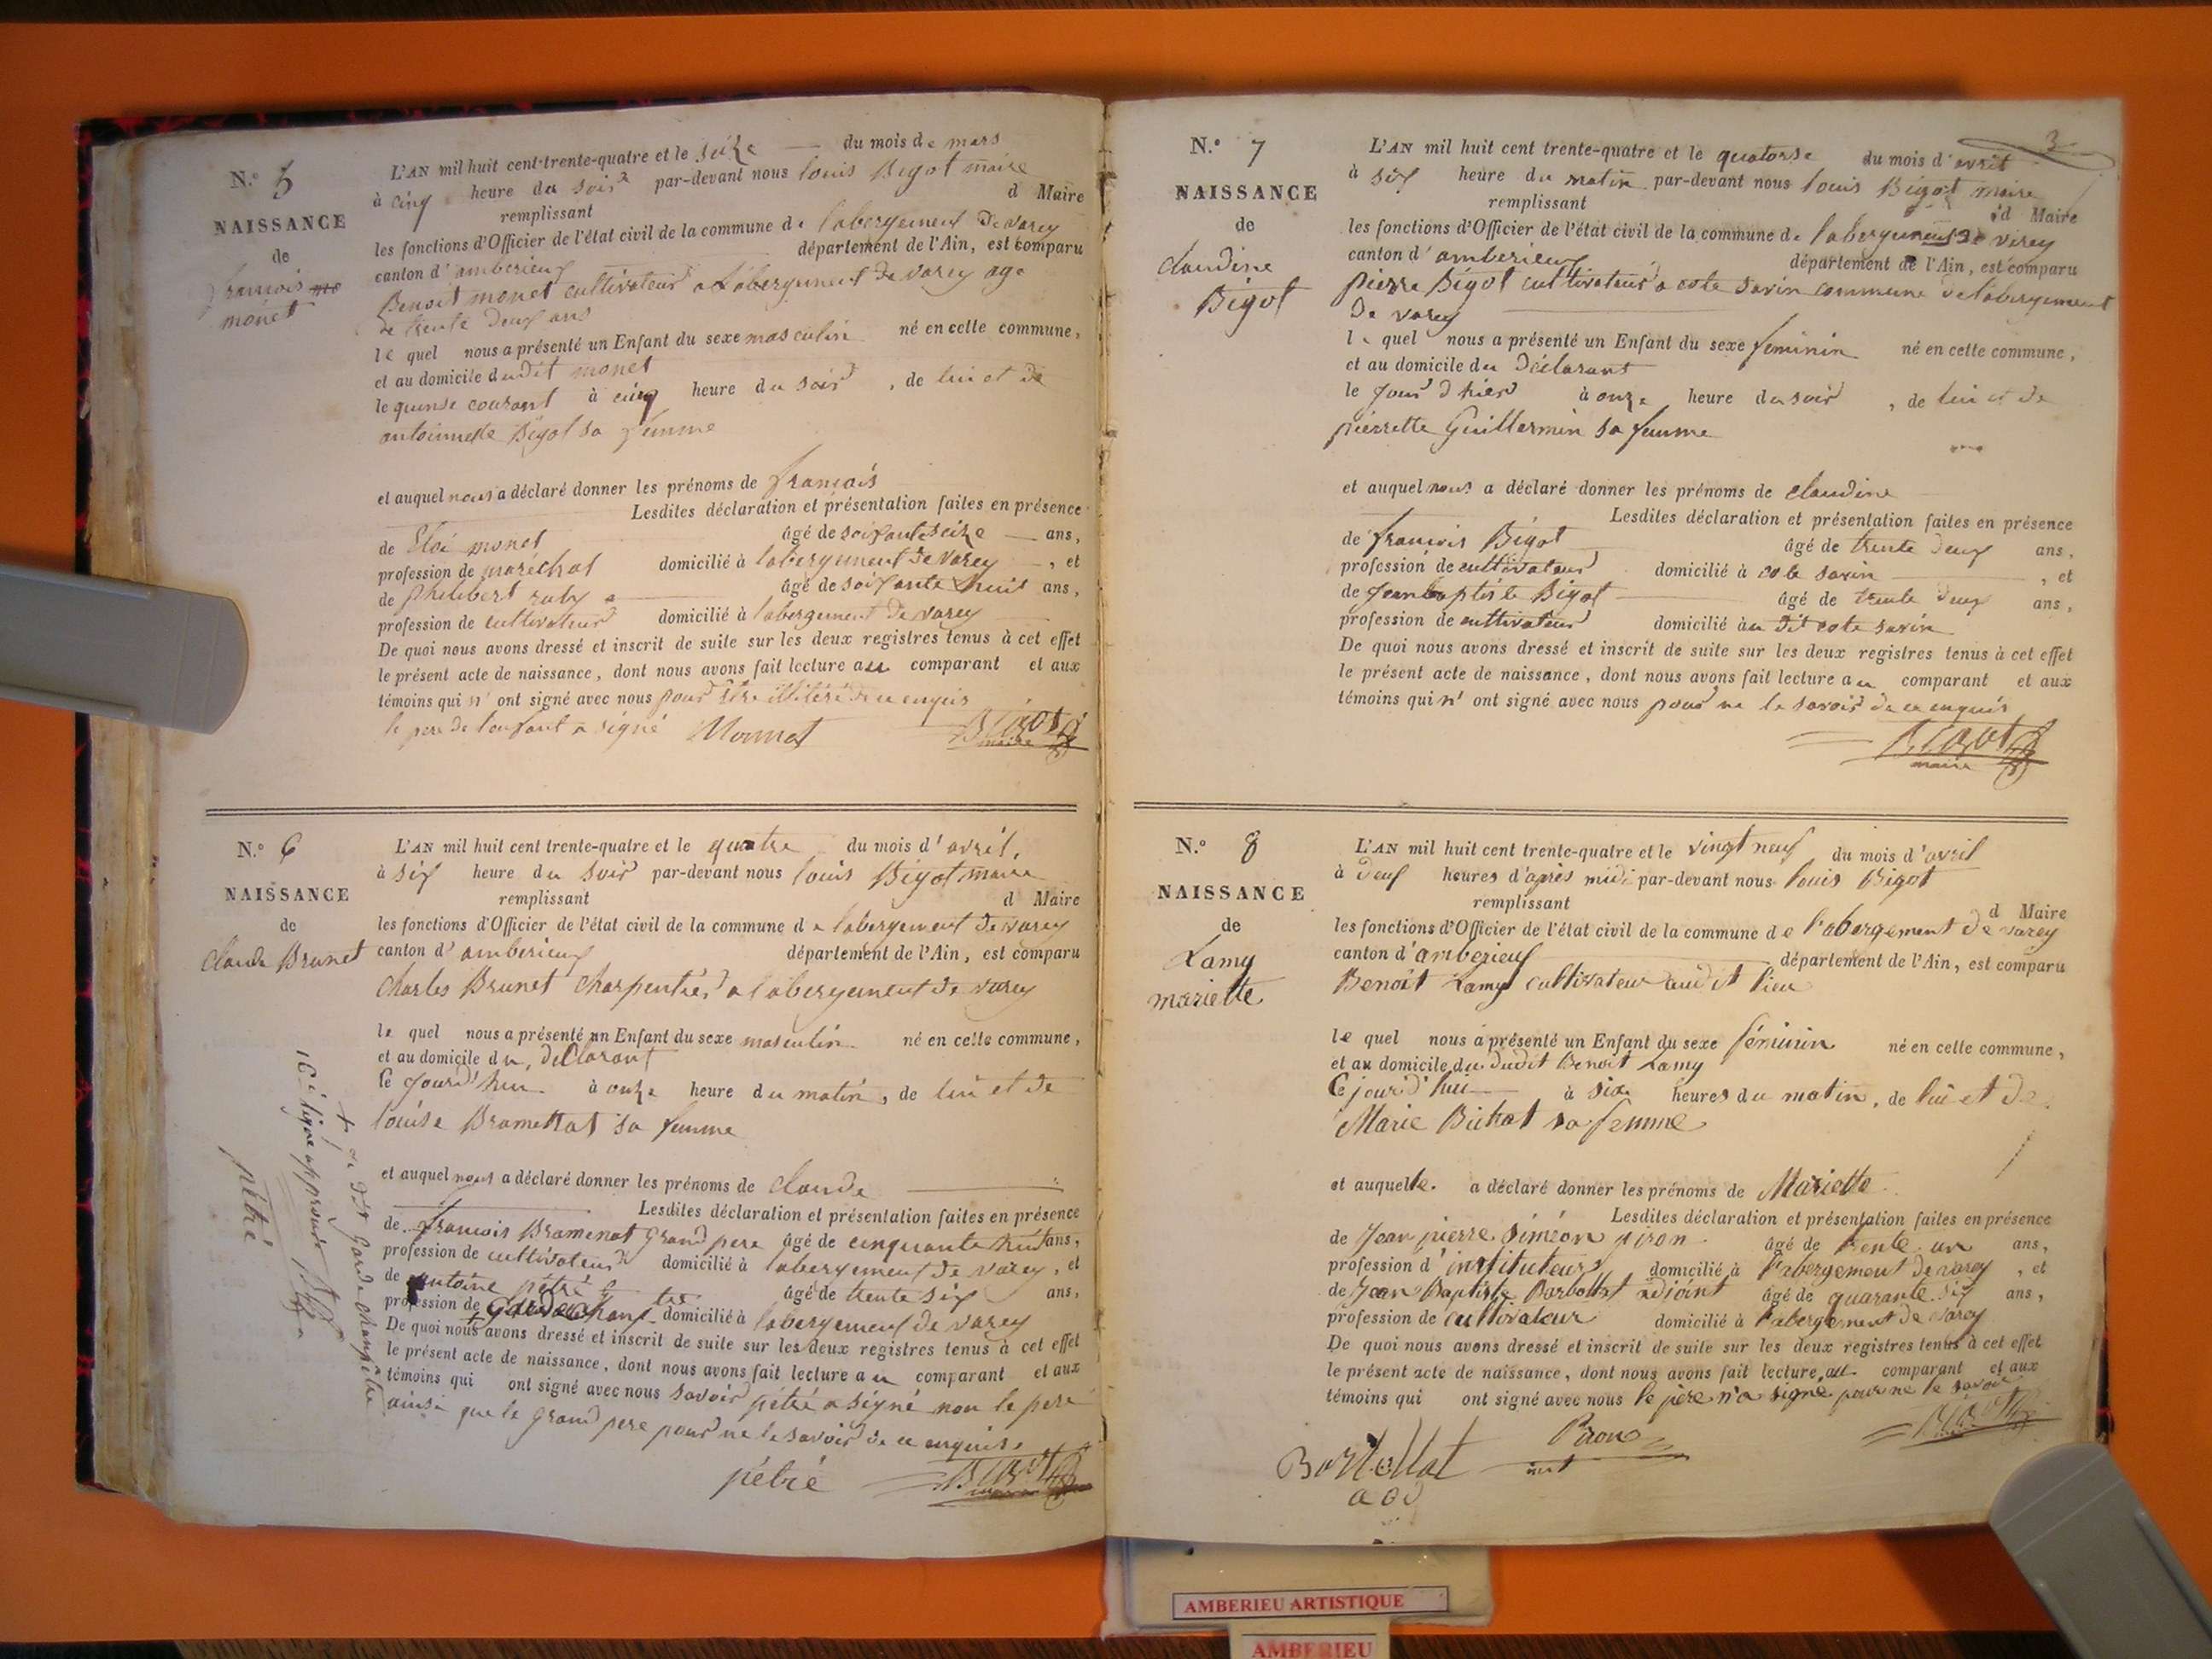 N.° 5
NAISSANCE
de
francois mo
monet
L'AN mil huit cent-trente-quatre et le seize du mois de mars
à cinq heure du soir par-devant nous louis Bigot maire
remplissant d Maire
les fonctions d'Officier de l'état civil de la commune de labergement de varey
canton d'amberieux département de l'Ain, est comparu
Benoit monet cultivateur a Labergement de varey age
de trente deux ans
le quel nous a présenté un Enfant du sexe masculin né en cette commune,
et au domicile dudit monet
le quinse courant à cinq heure du soir, de lui et de
antoinette Bigot sa femme
et auquel nous a déclaré donner les prénoms de francois
Lesdites déclaration et présentation faites en présence
de Eloi monet âgé de soixante seize ans,
profession de maréchal domicilié à labergement de varey, et
de philibert ruby âgé de soixante huit ans,
profession de cultivateur domicilié à labergement de varey
De quoi nous avons dressé et inscrit de suite sur les deux registres tenus à cet effet
le présent acte de naissance, dont nous avons fait lecture au comparant et aux
témoins qui n' ont signé avec nous pour être illitéré de ce enquis
le pere de lenfant a signé Monnet Bigot
maire
N.° 6
NAISSANCE
de
claude Brunet
L'AN mil huit cent trente-quatre et le quatre du mois d'avril,
à six heure du soir par-devant nous louis Bigot maire
remplissant d Maire
les fonctions d'Officier de l'état civil de la commune de labergement de varey
canton d'amberieux département de l'Ain, est comparu
charles Brunet charpentier a labergement de varey
le quel nous a présenté un Enfant du sexe masculin né en cette commune,
et au domicile du declarant
le jourd'hui à onze heure du matin, de lui et de
louise Bramettat sa femme
et auquel nous a déclaré donner les prénoms de claude
Lesdites déclaration et présentation faites en présence
de francois Bramenat grand pere âgé de cinquante huit ans,
profession de cultivateur domicilié à labergement de varey, et
de antoine pétré âgé de trente six ans,
profession de domicilié à labergement de varey
De quoi nous avons dressé et inscrit de suite sur les deux registres tenus à cet effet
le présent acte de naissance, dont nous avons fait lecture au comparant et aux
témoins qui ont signé avec nous savoir pétré a signé non le pere
ainsi que le grand pere pour ne le savoir de ce enquis,
pétré Bigot
maire
+ garde champêtre
16e ligne approuvé
pétré
3
N.° 7
NAISSANCE
de
claudine
Bigot
L'AN mil huit cent trente-quatre et le quatorse du mois d'avril
à six heure du matin par-devant nous louis Bigot maire
remplissant d Maire
les fonctions d'Officier de l'état civil de la commune de labergement de varey
canton d'amberieux département de l'Ain, est comparu
pierre Bigot cultivateur a cote savin commune de labergement
de varey
le quel nous a présenté un Enfant du sexe feminin né en cette commune,
et au domicile du déclarant
le jour d hier à onze heure du soir, de lui et de
pierrette Guillermin sa femme
et auquel nous a déclaré donner les prénoms de claudine
Lesdites déclaration et présentation faites en présence
de francois Bigot âgé de trente deux ans,
profession de cultivateur domicilié à cote savin, et
de jean baptiste Bigot âgé de trente deux ans,
profession de cultivateur domicilié au dit cote savin
De quoi nous avons dressé et inscrit de suite sur les deux registres tenus à cet effet
le présent acte de naissance, dont nous avons fait lecture au comparant et aux
témoins qui n' ont signé avec nous pour ne le savoir de ce enquis
Bigot
maire
N.° 8
NAISSANCE
de
Lamy
mariette
L'AN mil huit cent trente-quatre et le vingt neuf du mois d'avril
à deux heures d'après midi par-devant nous louis Bigot
remplissant d Maire
les fonctions d'Officier de l'état civil de la commune de l'abergement de varey
canton d'amberieux département de l'Ain, est comparu
Benoit Lamy cultivateur audit lieu
le quel nous a présenté un Enfant du sexe féminin né en cette commune,
et au domicile du dudit Benoit Lamy
Cejourd'hui à six heures du matin, de lui et de
Marie Bichat sa femme
et auquelle a déclaré donner les prénoms de Mariette
Lesdites déclaration et présentation faites en présence
de Jean pierre siméon piron âgé de trente un ans,
profession d'instituteur domicilié à l'abergement de varey, et
de Jean Baptiste Barbollat adjoint âgé de quarante six ans,
profession de cultivateur domicilié à l'abergement de varey
De quoi nous avons dressé et inscrit de suite sur les deux registres tenus à cet effet
le présent acte de naissance, dont nous avons fait lecture au comparant et aux
témoins qui ont signé avec nous le père n'a signé pour ne le savoir
Piron Bigot
inst
Barbollat
adj
AMBERIEU ARTISTIQUE
AMBERIEU